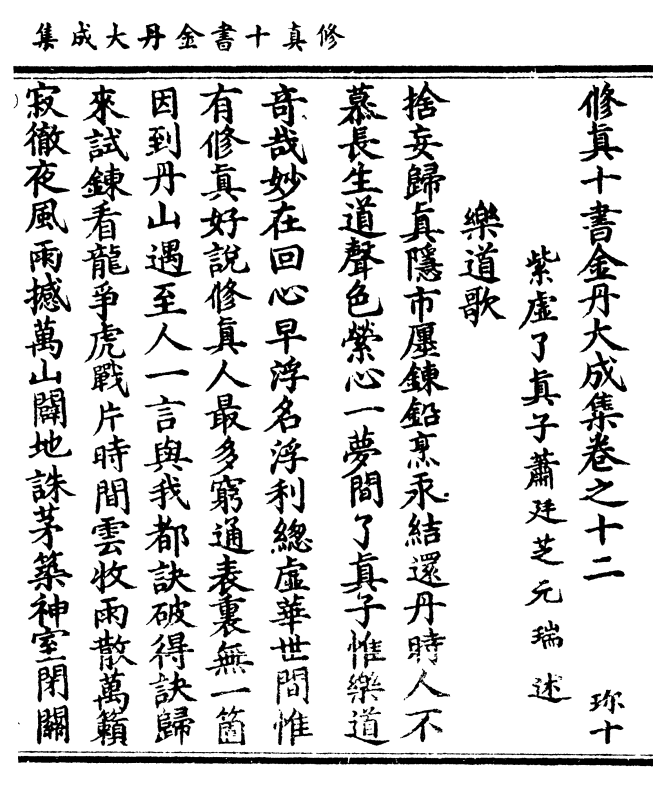 修真十書金丹大成集
修真十書金丹大成集卷之十二 珎十
紫虛了真子蕭廷芝元瑞述
樂道歌
捨妄歸真隱市廛鍊鉛烹汞結還丹時人不
慕長生道聲色縈心一夢間了真子惟樂道
奇哉妙在回心早浮名浮利總虛華世間惟
有修真好說修真人最多窮通表裏無一箇
因到丹山遇至人一言與我都訣破得訣歸
來試鍊看龍爭虎戰片時間雲收雨散萬籟
寂徹夜風雨撼萬山闢地誅茅築神室閉關